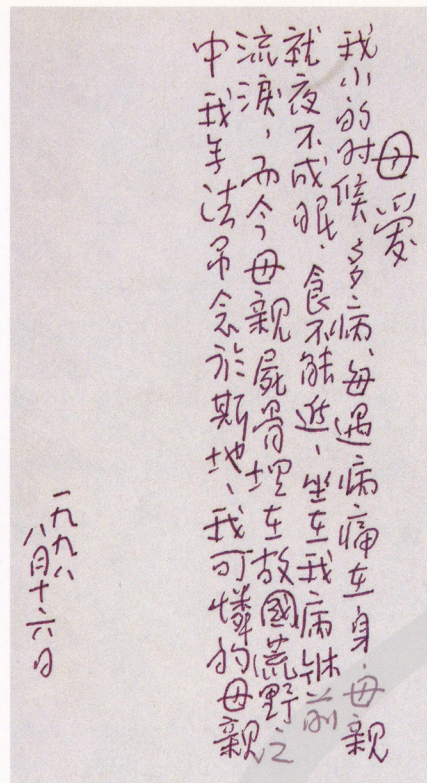 母爱
我小的时候多病,每遇病痛在身,母親
就夜不成眠、食不能進、坐在我病牀前
流淚,而今母親屍骨埋在故國荒野之
中我無法吊念於斯地、我可憐的母親
一九九八
八月十六日